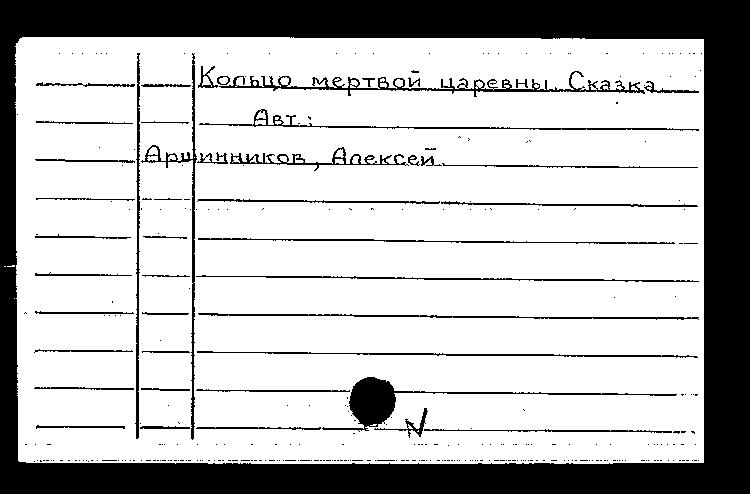 Кольцо мертвой царевны. Сказка.
Авт.:
Аршинников, Алексей.